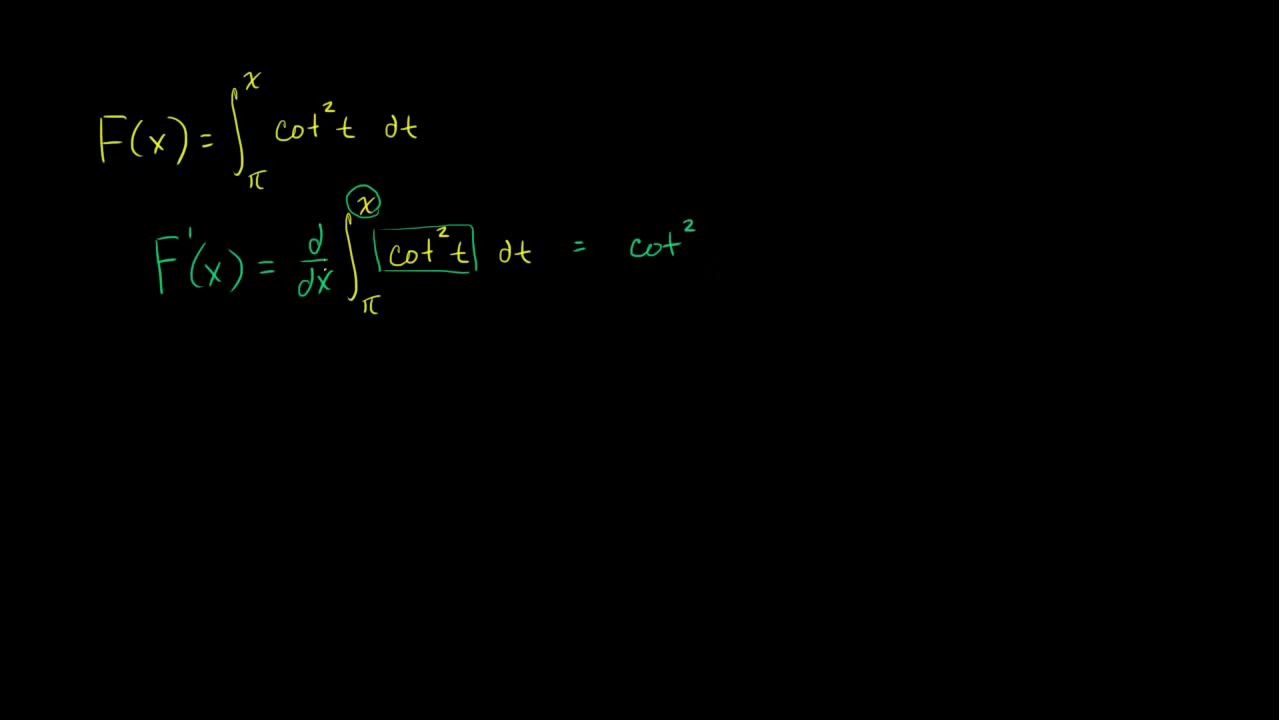 F(x) = ∫_π^x cot² t dt
F'(x) = d/dx ∫_π^x cot² t dt = cot²